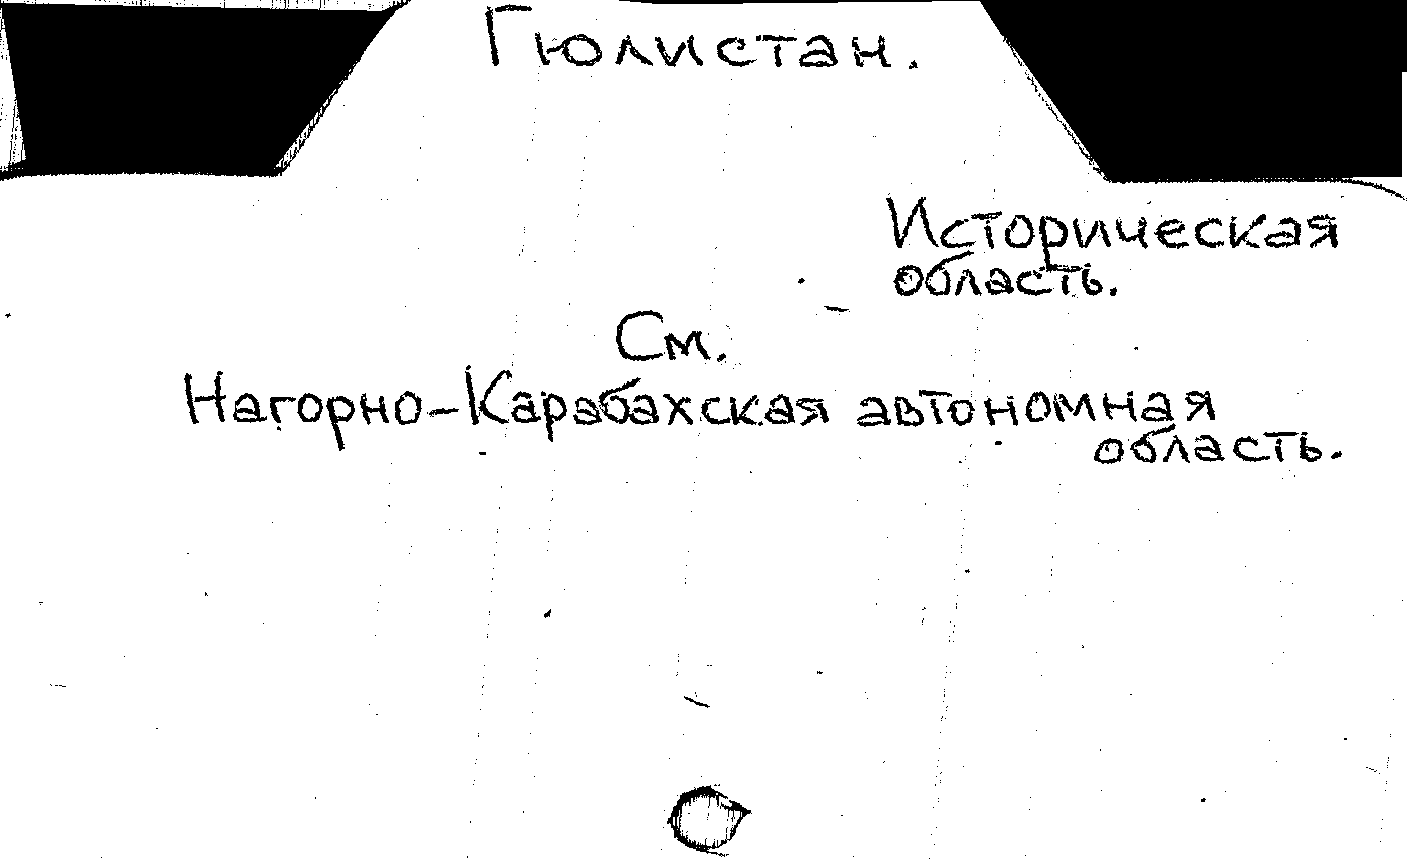 Гюлистан.
Историческая
область.
См.
Нагорно-Карабахская автономная
область.